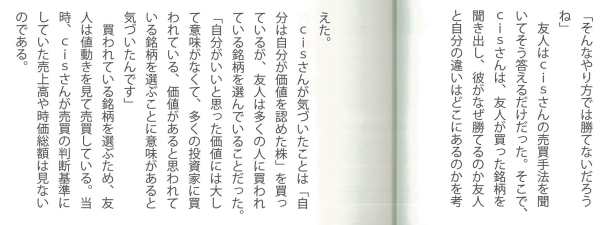 「そんなやり方では勝てないだろう
ね」
友人はｃｉｓさんの売買手法を聞
いてそう答えるだけだった。そこで、
ｃｉｓさんは、友人が買った銘柄を
聞き出し、彼がなぜ勝てるのか友人
と自分の違いはどこにあるのかを考
えた。
ｃｉｓさんが気づいたことは「自
分は自分が価値を認めた株」を買っ
ているが、友人は多くの人に買われ
ている銘柄を選んでいることだった。
「自分がいいと思った価値には大し
て意味がなくて、多くの投資家に買
われている、価値があると思われて
いる銘柄を選ぶことに意味があると
気づいたんです」
買われている銘柄を選ぶため、友
人は値動きを見て売買している。当
時、ｃｉｓさんが売買の判断基準に
していた売上高や時価総額は見ない
のである。